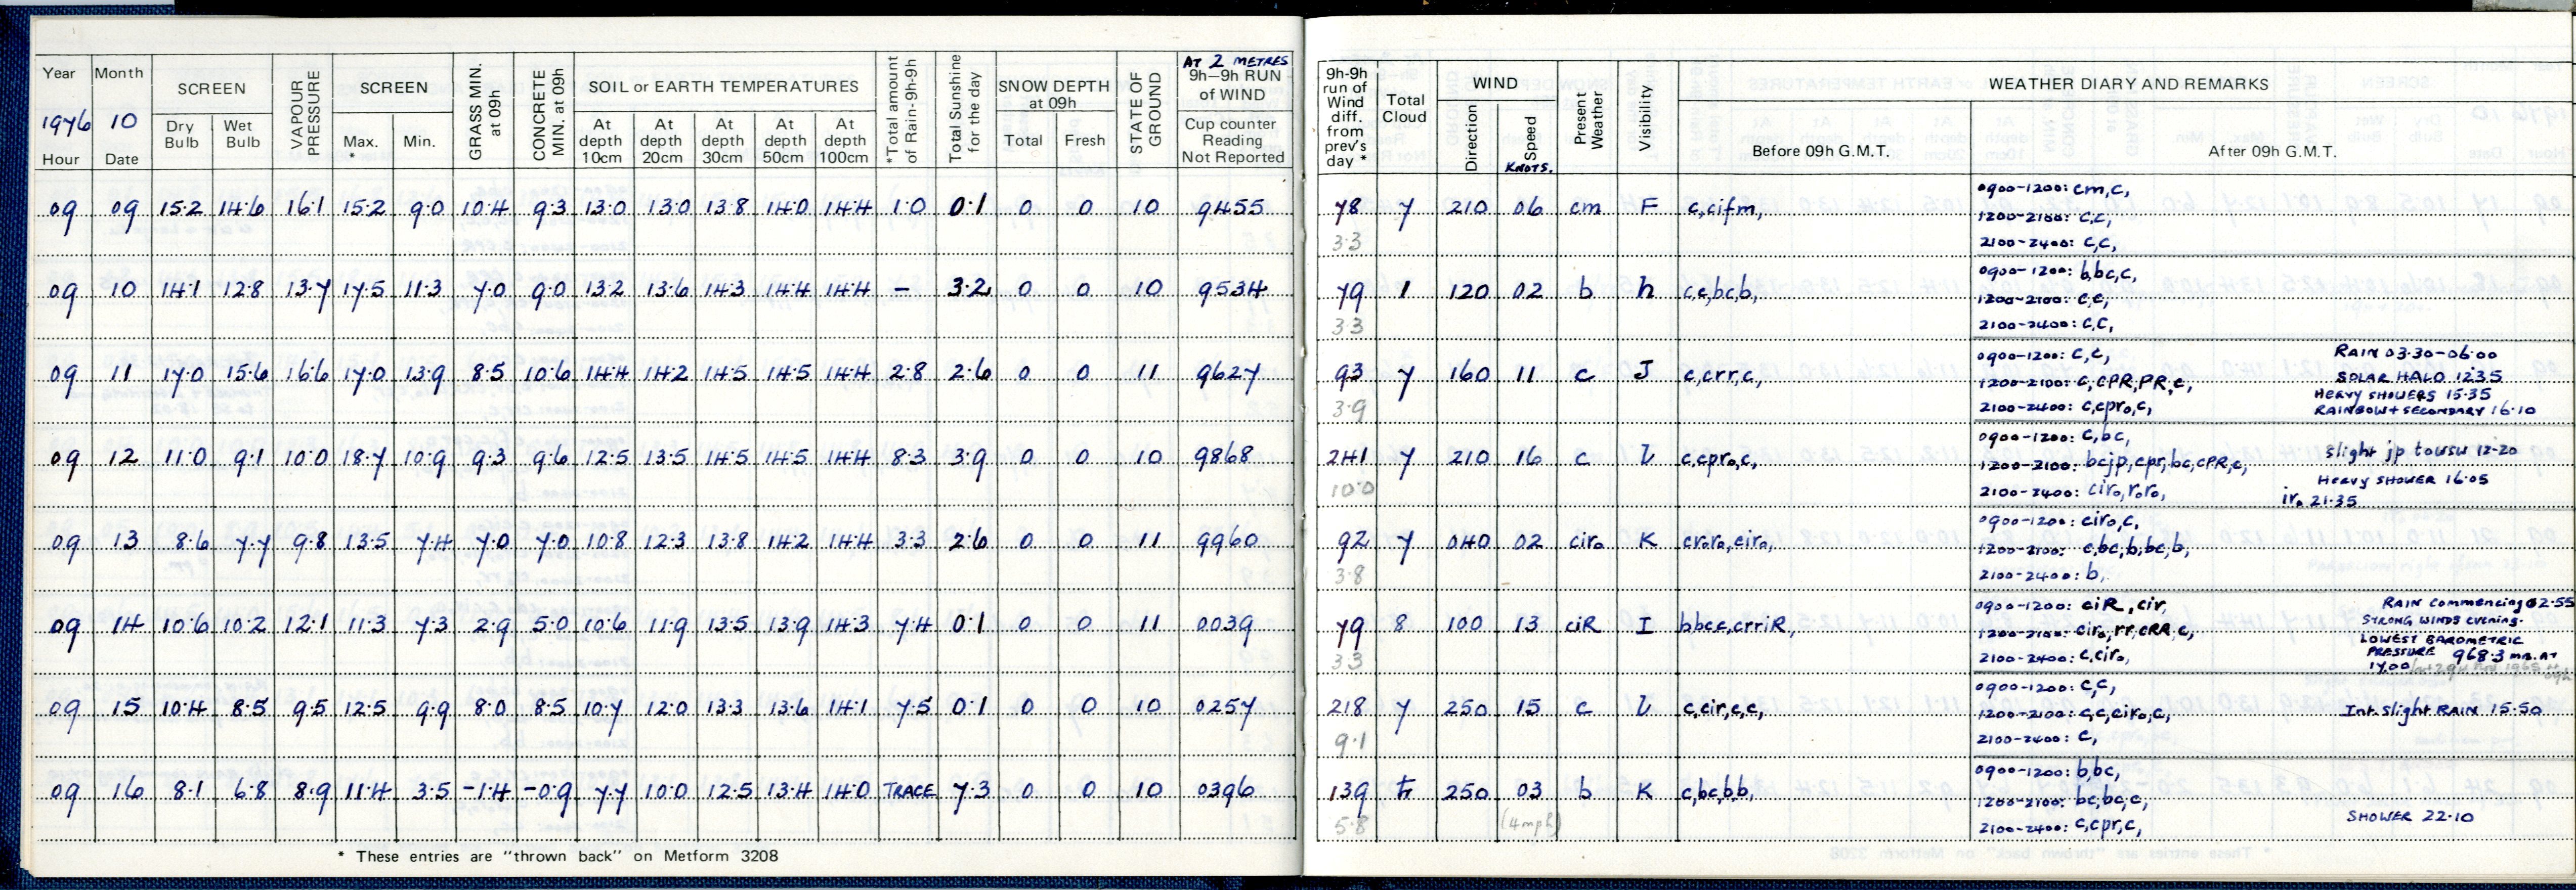 Year Month SCREEN VAPOUR PRESSURE SCREEN GRASS MIN. at 09h CONCRETE MIN. at 09h SOIL or EARTH TEMPERATURES *Total amount of Rain-9h-9h Total Sunshine for the day SNOW DEPTH at 09h STATE OF GROUND AT 2 METRES 9h–9h RUN of WIND
1976 10 Dry Bulb Wet Bulb Max. * Min. At depth 10cm At depth 20cm At depth 30cm At depth 50cm At depth 100cm Total Fresh Cup counter Reading Not Reported
Hour Date
09 09 15.2 14.6 16.1 15.2 9.0 10.4 9.3 13.0 13.0 13.8 14.0 14.4 1.0 0.1 0 0 10 9455
09 10 14.1 12.8 13.7 17.5 11.3 7.0 9.0 13.2 13.6 14.3 14.4 14.4 – 3.2 0 0 10 9534
09 11 17.0 15.6 16.6 17.0 13.9 8.5 10.6 14.4 14.2 14.5 14.5 14.4 2.8 2.6 0 0 11 9627
09 12 11.0 9.1 10.0 18.7 10.9 9.3 9.6 12.5 13.5 14.5 14.5 14.4 8.3 3.9 0 0 10 9868
09 13 8.6 7.7 9.8 13.5 7.4 7.0 7.0 10.8 12.3 13.8 14.2 14.4 3.3 2.6 0 0 11 9960
09 14 10.6 10.2 12.1 11.3 7.3 2.9 5.0 10.6 11.9 13.5 13.9 14.3 7.4 0.1 0 0 11 0039
09 15 10.4 8.5 9.5 12.5 9.9 8.0 8.5 10.7 12.0 13.3 13.6 14.1 7.5 0.1 0 0 10 0257
09 16 8.1 6.8 8.9 11.4 3.5 -1.4 -0.9 7.7 10.0 12.5 13.4 14.0 TRACE 7.3 0 0 10 0396
* These entries are "thrown back" on Metform 3208
9h-9h run of Wind diff. from prev's day * Total Cloud WIND Present Weather Visibility WEATHER DIARY AND REMARKS
Direction Speed KNOTS. Before 09h G.M.T. After 09h G.M.T.
0900-1200: cm,c,
78 7 210 06 cm F c,cifm, 1200-2100: c,c,
3.3 2100-2400: c,c,
0900-1200: b,bc,c,
79 1 120 02 b h c,c,bc,b, 1200-2100: c,c,
3.3 2100-2400: c,c,
0900-1200: c,c, RAIN 03.30-06.00
93 7 160 11 c J c,crr,c, 1200-2100: c,cPR,PR,c, SOLAR HALO 1235
HEAVY SHOWERS 15.35
3.9 2100-2400: c,cpr₀,c, RAINBOW + SECONDARY 16.10
0900-1200: c,bc,
241 7 210 16 c l c,cpr₀,c, 1200-2100: bcjp,cpr,bc,cPR,c, slight jp to WSW 12-20
HEAVY SHOWER 16.05
10.0 2100-2400: cir₀,r₀r₀, ir₀ 21.35
0900-1200: cir₀,c,
92 7 040 02 cir₀ K cr₀r₀,cir₀, 1200-2100: c,bc,b,bc,b,
3.8 2100-2400: b,
0900-1200: ciR,cir, RAIN commencing 02.55
79 8 100 13 ciR I bbcc,crriR, 1200-2100: cir₀,rr,cRR,c, STRONG WINDS evening.
LOWEST BAROMETRIC
3.3 2100-2400: c,cir₀, PRESSURE 968.3 MB. AT
17.00
0900-1200: c,c,
218 7 250 15 c l c,cir,c,c, 1200-2100: c,c,cir₀,c, Int. slight RAIN 15.50
9.1 2100-2400: c,
0900-1200: b,bc,
139 250 03 b K c,bc,b,b, 1200-2100: bc,bc,c,
5.8 (4mph) 2100-2400: c,cpr,c, SHOWER 22.10